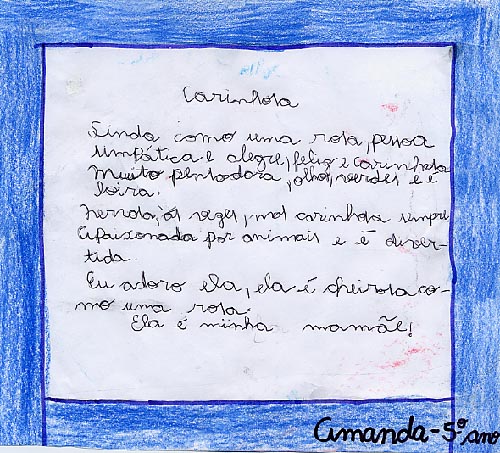 Carinhosa
Linda como uma rosa, pessoa
simpática e alegre, feliz e carinhosa
Muito pensadora, olhos verdes e é
loira.
Nervosa, às vezes, mas carinhosa sempre
Apaixonada por animais e é diver-
tida.
Eu adoro ela, ela é cheirosa co-
mo uma rosa.
Ela é minha mamãe!
Amanda - 5º ano